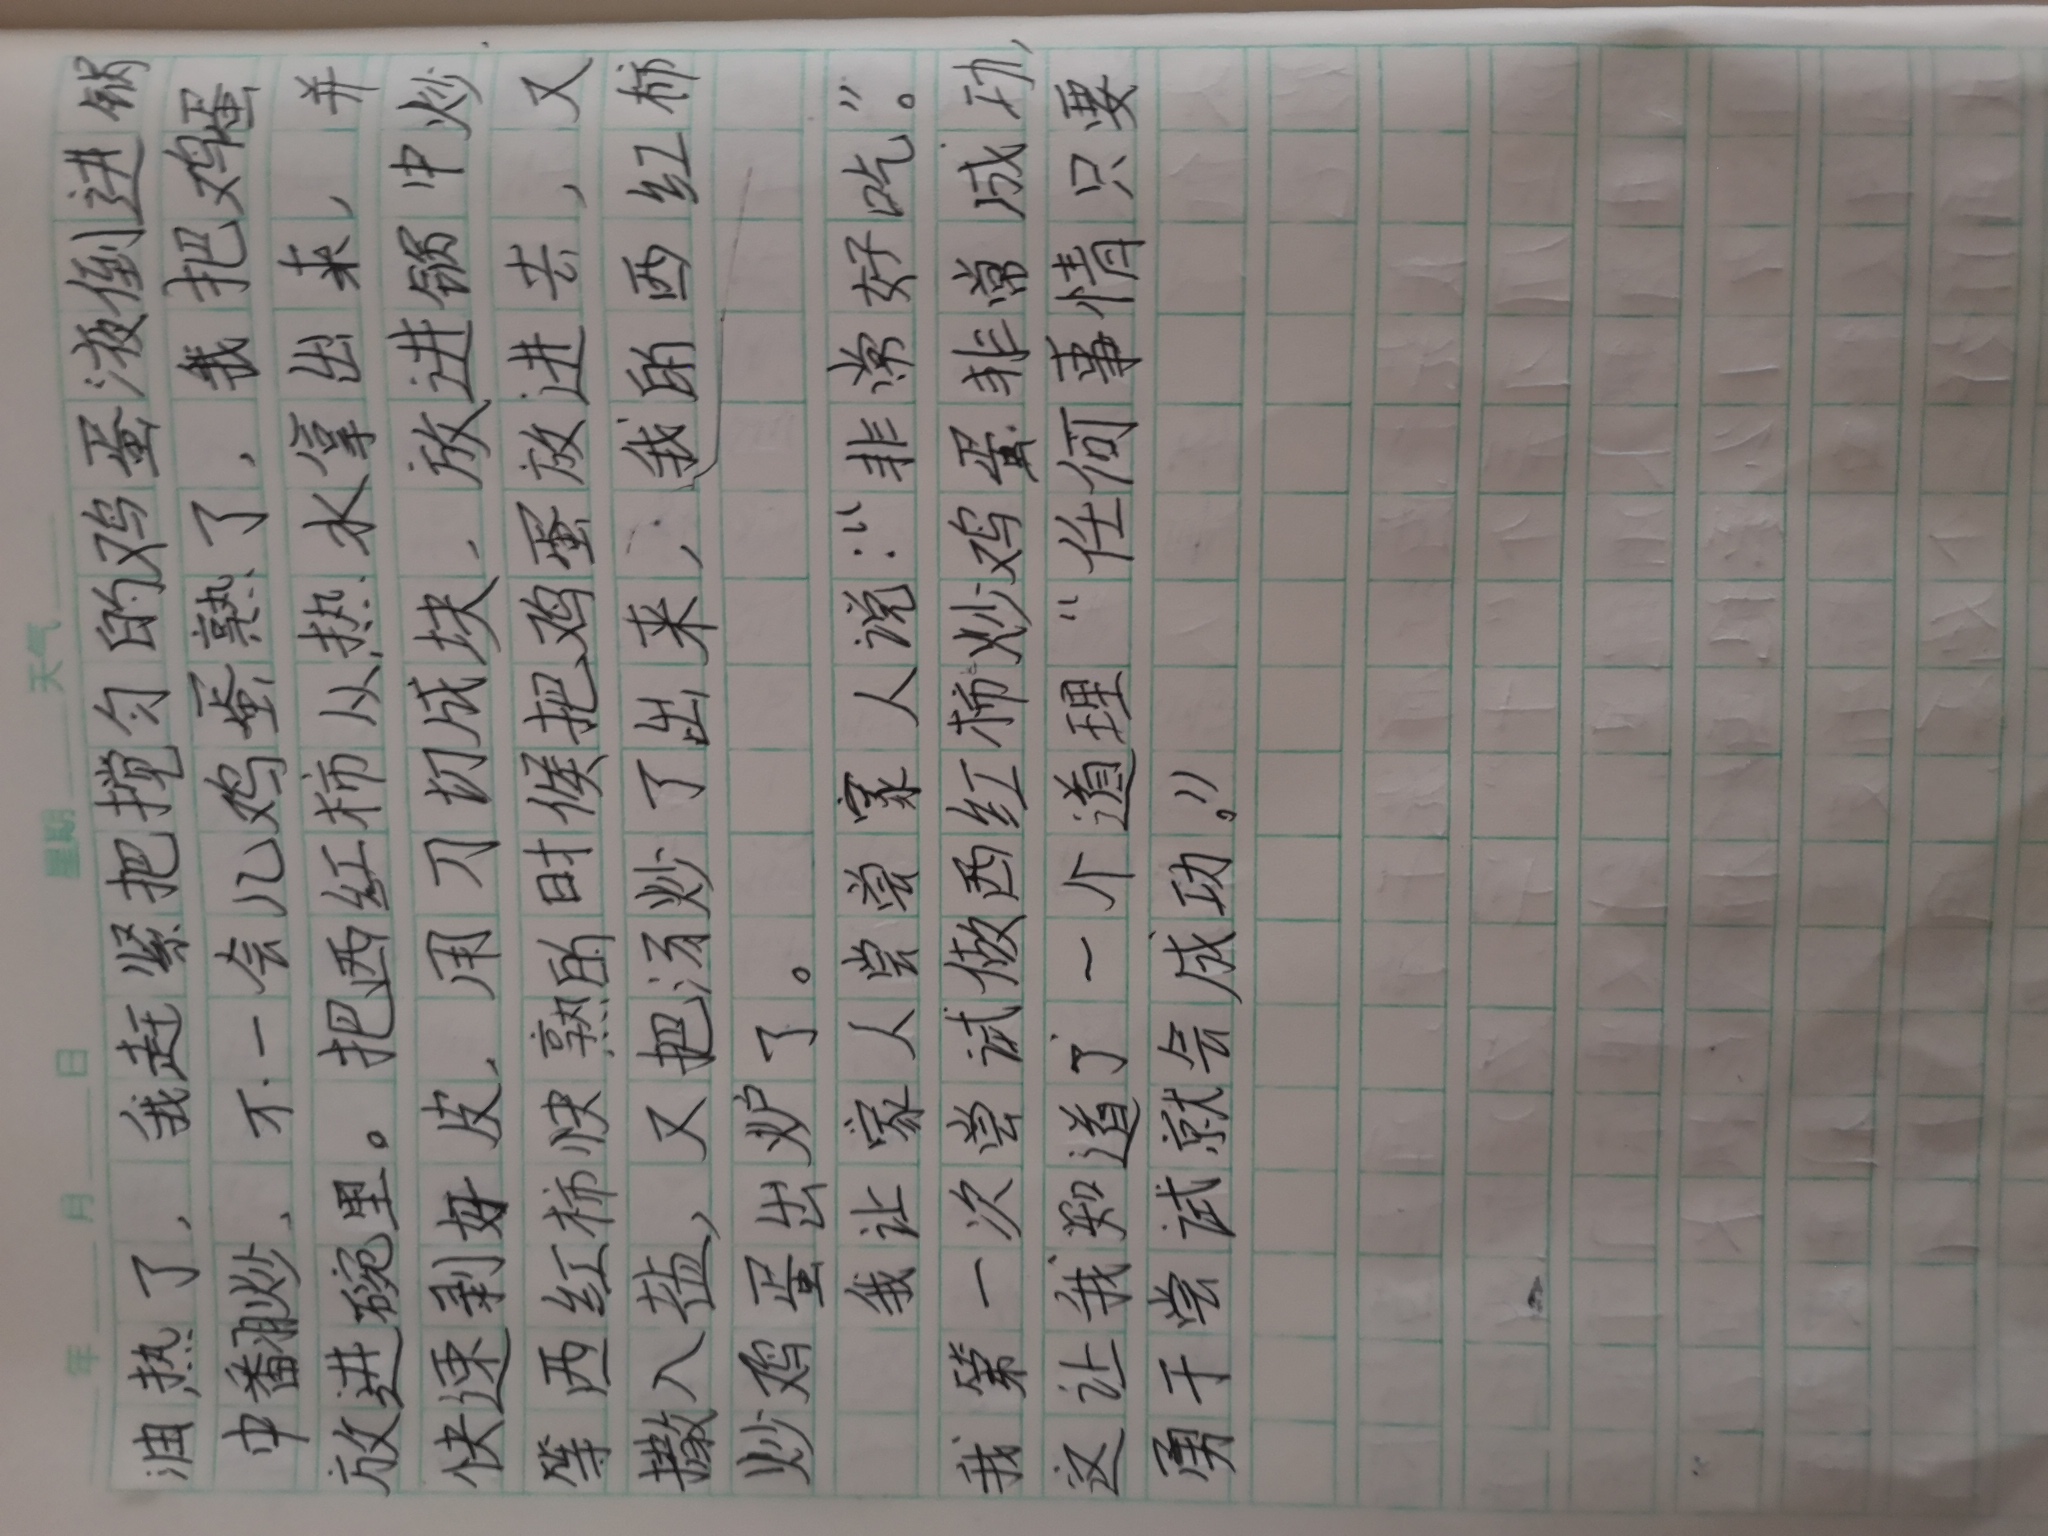 年 月 日 星期 天气
油热了，我赶紧把搅匀的鸡蛋液倒进锅
中翻炒，不一会儿鸡蛋熟了，我把鸡蛋
放进碗里。把西红柿从热水拿出来，并
快速剥好皮，用刀切成块，放进锅中炒
等西红柿快熟的时候把鸡蛋放进去，又
撒入盐，又把汤炒了出来，我的西红柿
炒鸡蛋出炉了。
我让家人尝尝家人说：“非常好吃”。
我第一次尝试做西红柿炒鸡蛋非常成功，
这让我知道了一个道理“任何事情只要
勇于尝试就会成功。”